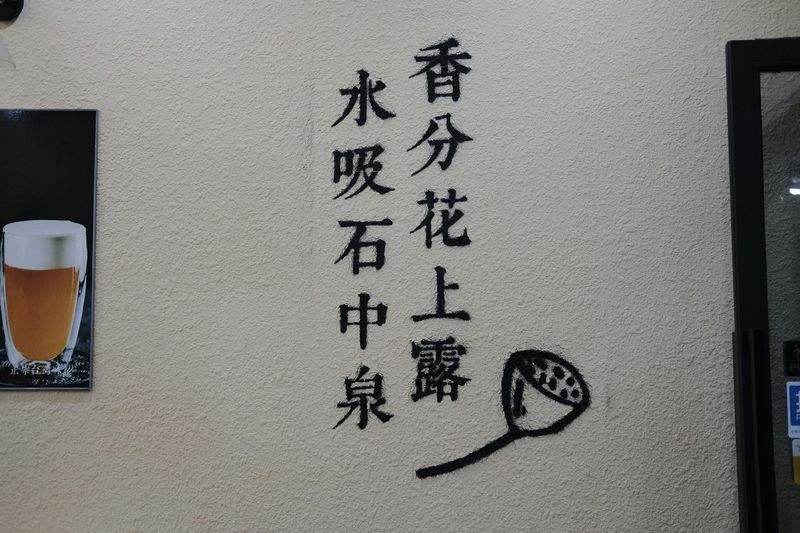 香分花上露
水吸石中泉